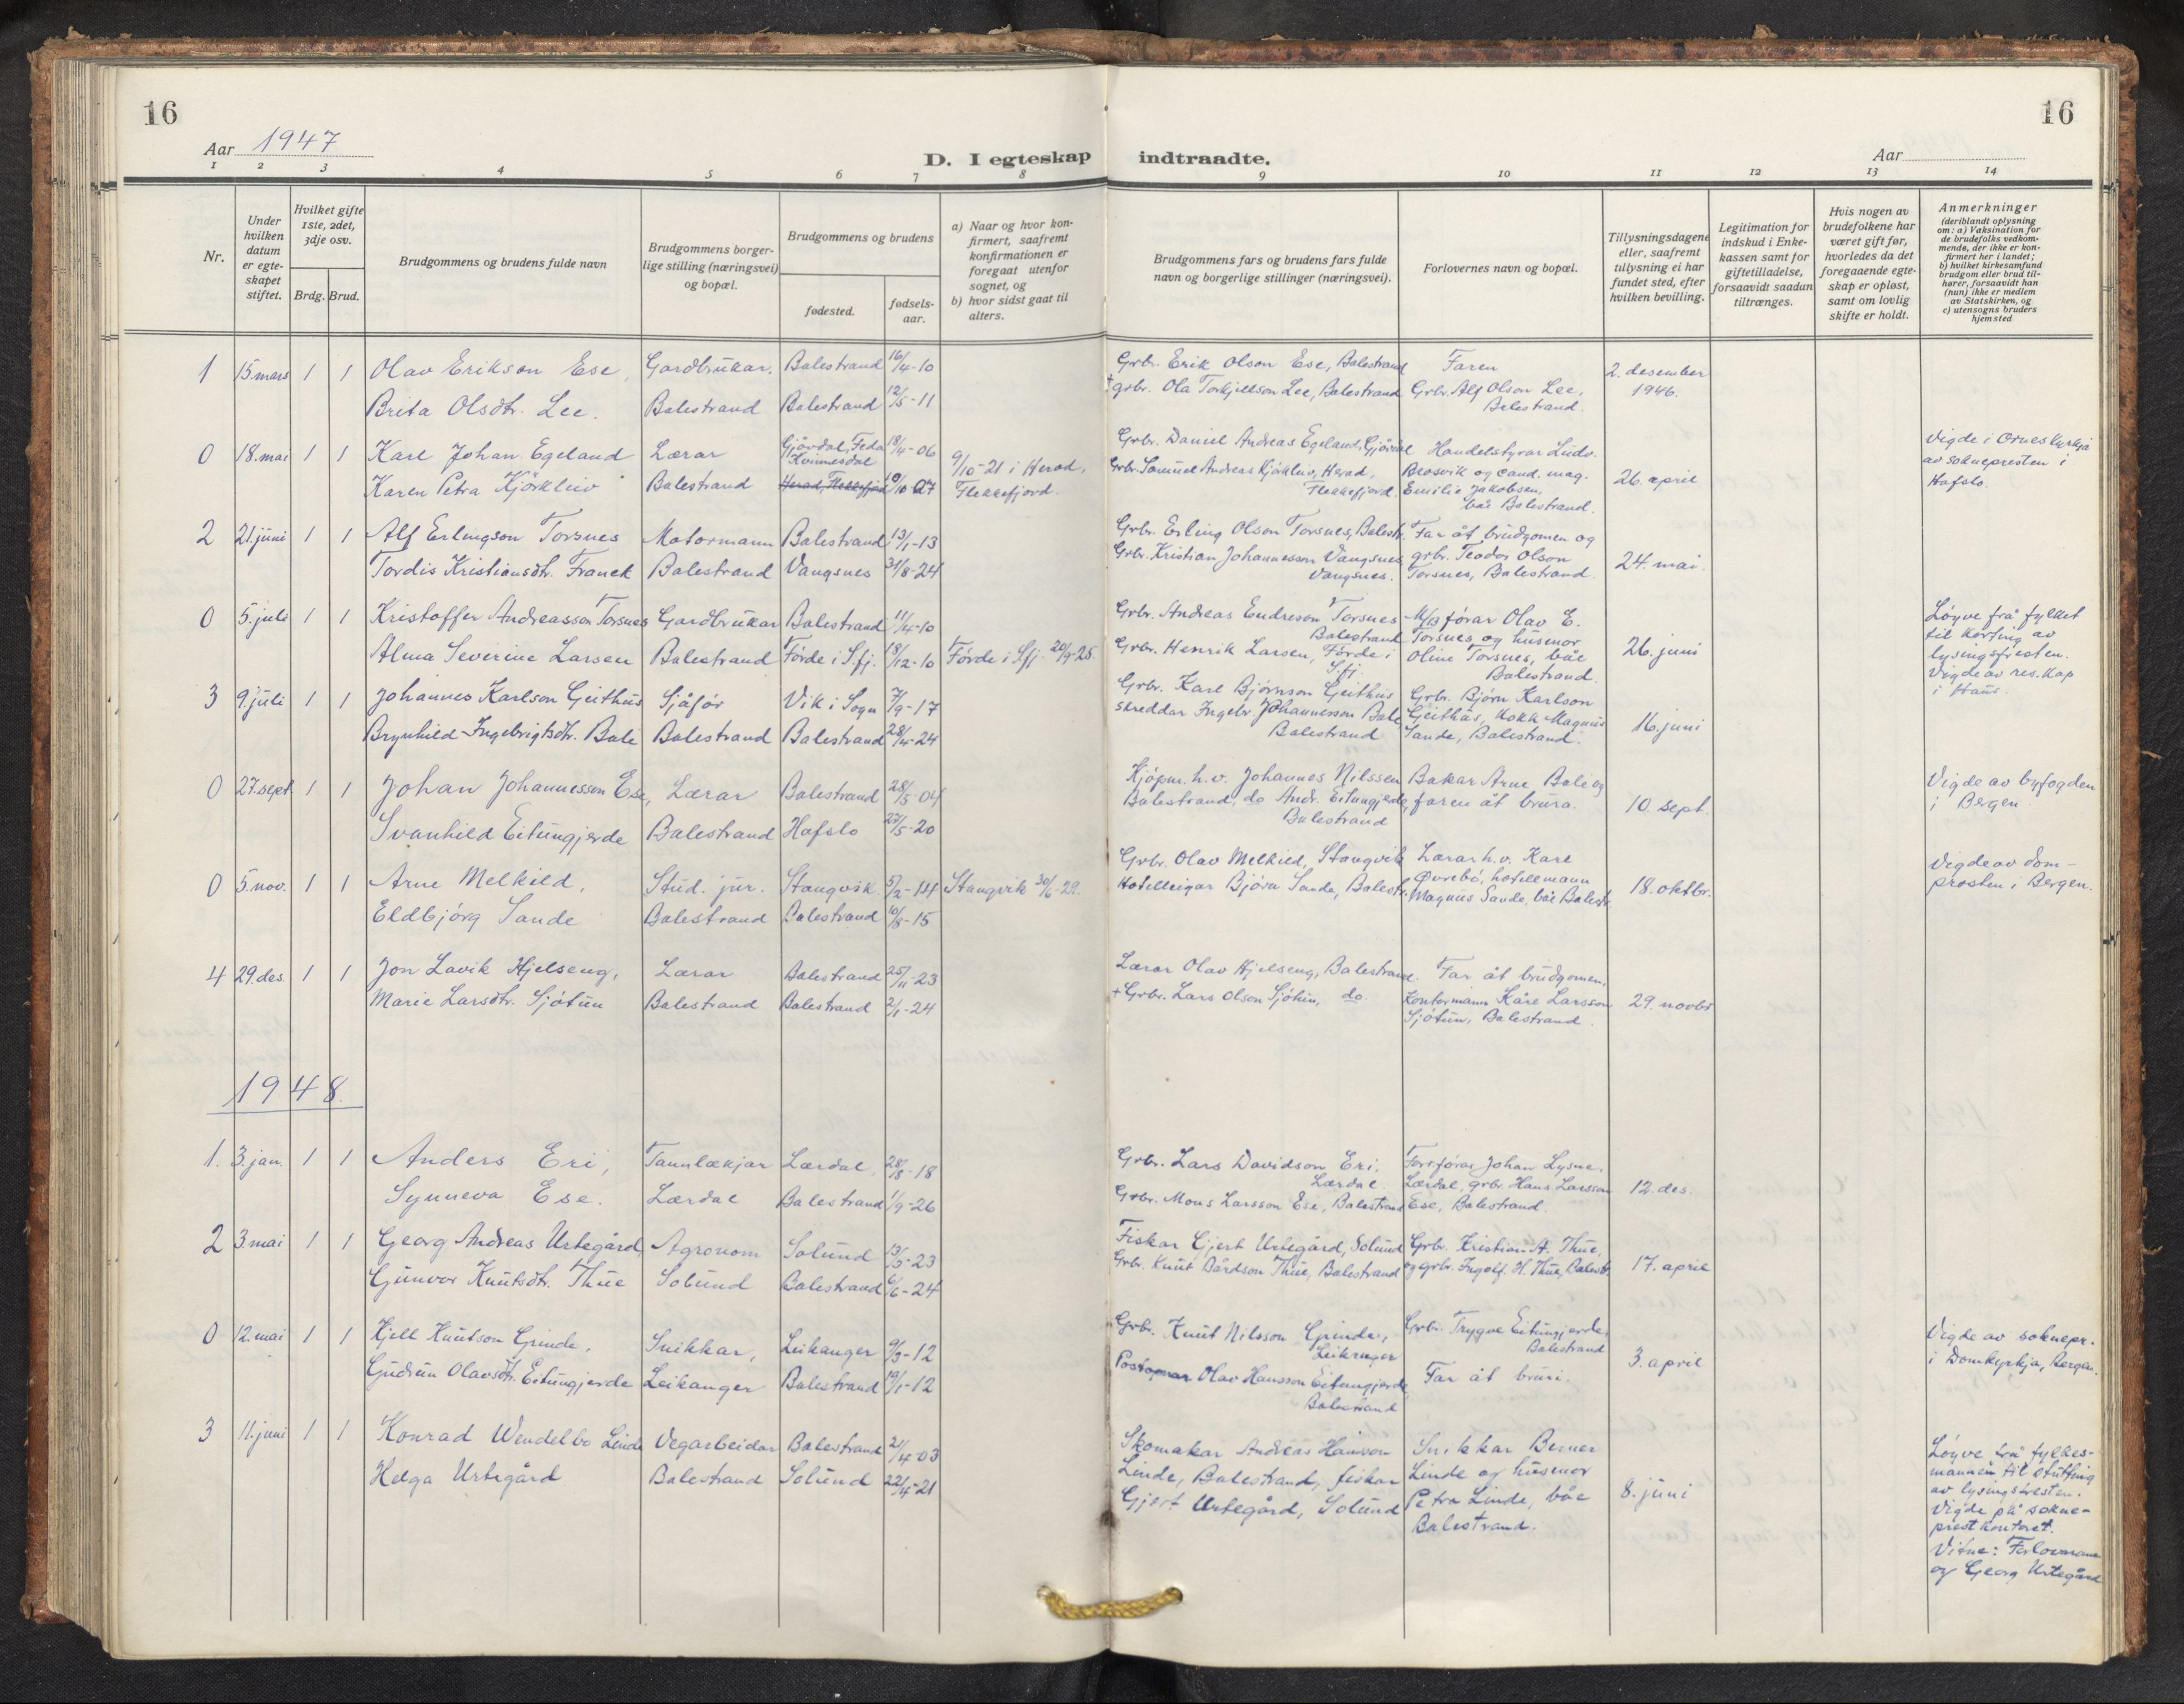 16
16
Aar 1947
D. I egteskap indtraadte.
Aar
1 2 3 4 5 6 7 8 9 10 11 12 13 14
Nr.
Under hvilken datum er egteskapet stiftet.
Hvilket gifte 1ste, 2det, 3dje osv.
Brdg. Brud.
Brudgommens og brudens fulde navn
Brudgommens borgerlige stilling (næringsvei) og bopæl.
Brudgommens og brudens
fødested.
fødselsaar.
a) Naar og hvor konfirmert, saafremt konfirmationen er foregaat utenfor sognet, og
b) hvor sidst gaat til alters.
Brudgommens fars og brudens fars fulde navn og borgerlige stillinger (næringsvei).
Forlovernes navn og bopæl.
Tillysningsdagene eller, saafremt tillysning ei har fundet sted, efter hvilken bevilling.
Legitimation for indskud i Enkekassen samt for giftetilladelse, forsaavidt saadan tiltrænges.
Hvis nogen av brudefolkene har været gift før, hvorledes da det foregaaende egteskap er opløst, samt om lovlig skifte er holdt.
Anmerkninger
(deriblandt oplysning om: a) Vaksination for de brudefolks vedkommende, der ikke er konfirmert her i landet; b) hvilket kirkesamfund brudgom eller brud tilhører, forsaavidt han (hun) ikke er medlem av Statskirken, og c) utensogns bruders hjemsted
1 15 mars 1 1 Olav Erikson Ese, Gardbrukar. Balestrand 16/4-10 Grbr. Erik Olson Ese, Balestrand Faren 2. desember
Brita Olsdtr. Lee. Balestrand Balestrand 12/5-11 + grbr. Ola Torkjellson Lee, Balestrand Grbr. Alf Olson Lee, 1946.
Balestrand.
0 18. mai 1 1 Karl Johan Egeland Lærar Gjøvdal, Feda 18/4-06 Grbr. Daniel Andreas Egeland, Handelstyrar Ludv. Vigde i Ornes kyrkja
Kvinesdal 9/10-21 i Herad, Brosvik og cand. mag. av soknepresten i
Karen Petra Kjørkleiv Balestrand Herad, Flekkefjord 07 Flekkefjord. Grbr. Samuel Andreas Kjørkleiv, Herad, Emilie Jakobsen, 26. april Hafslo.
Flekkefjord. båe Balestrand.
2 21. juni 1 1 Alf Erlingson Torsnes Motormann Balestrand 13/1-13 Grbr. Erling Olson Torsnes, Balestr. Far åt brudgomen og
Tordis Kristiansdtr. Franck Balestrand Vangsnes 31/8-24 Grbr. Kristian Johannesson Vangsnes grbr. Teodor Olson 24. mai.
Vangsnes. Torsnes, Balestrand.
0 5. juli 1 1 Kristoffer Andreasson Torsnes Gardbrukar Balestrand 11/4-10 Grbr. Andreas Endreson Torsnes M/B førar Olav E. Løyve frå fylket
Balestrand Torsnes og husmor til korting av
Alma Severine Larsen Balestrand Førde i S.fj. 18/12-10 Førde i S.fj. 20/9-25. Grbr. Henrik Larsen, Førde i Oline Torsnes, båe 26. juni lysingsfresten.
S.fj. Balestrand. Vigde av res. kap
i
3 9. juli 1 1 Johannes Karlson Geithus Sjåfør Vik i Sogn 7/9-17 Grbr. Karl Bjørnson Geithus Grbr. Bjørn Karlson
Brynhild Ingebrigtsdtr. Bale Balestrand Balestrand 28/4-24 skreddar Ingebr. Johannesson Bale Geithus, kokk Magnus 16. juni
Balestrand Sande, Balestrand.
0 27. sept. 1 1 Johan Johannesson Ese, Lærar Balestrand 28/5-04 Kjøpm. h.v. Johannes Nilssen Bakar Arne Bale og Vigde av byfogden
Svanhild Eitungjerde Balestrand Hafslo 27/5-20 Balestrand, do Andr. Eitungjerde, faren åt brura. 10. sept. i Bergen.
Balestrand
0 5. nov. 1 1 Arne Melkild, Stud. jur. Stangvik 5/2-14 Stangvik 30/6-29. Grbr. Olav Melkild, Stangvik Lærar h.v. Karl Vigde av dom-
Eldbjørg Sande Balestrand Balestrand 10/8-15 Hotelleigar Bjørn Sande, Balestr. Øvrebø, hotellmann 18. oktbr. prosten i Bergen.
Magnus Sande, båe Balestr.
4 29. des. 1 1 Jon Lavik Hjelseng, Lærar Balestrand 25/11-23 Lærar Olav Hjelseng, Balestrand. Far åt brudgomen,
Marie Larsdtr. Sjøtun Balestrand Balestrand 2/1-24 + Grbr. Lars Olson Sjøtun, do. Kontormann Kåre Larsson 29. novbr
Sjøtun, Balestrand
1948.
1. 3. jan. 1 1 Anders Eri, Tannlækjar Lærdal, 28/8-18 Grbr. Lars Davidson Eri, Johan Lysne,
Lærdal. Lærdal, grbr. Hans Larsson 12. des.
Synneva Ese. Lærdal Balestrand 1/9-26 Grbr. Mons Larsson Ese, Balestrand Ese, Balestrand.
2 3 mai 1 1 Georg Andreas Urtegård Agronom Solund 23 Fiskar Gjert Urtegård, Solund Grbr. Kristian A. Thue,
Gunvor Knutsdtr. Thue Solund Balestrand 6/6-24 Grbr. Knut Bårdson Thue, Balestrand og grbr. Ingolf. H. Thue, Balestr. 17. april
0 12. mai 1 1 Kjell Knutson Grinde, Snikkar, Leikanger 9/3-12 Grbr. Knut Nilsson Grinde, Grbr. Trygve Eitungjerde, Vigde av soknepr.
Leikanger Balestrand 3. april i Domkyrkja, Bergen.
Gudrun Olavsdtr. Eitungjerde Leikanger Balestrand 19/1-12 Postopnar Olav Hansson Eitungjerde, Far åt bruri.
Balestrand
3 11. juni 1 1 Konrad Wendelbo Linde Vegarbeidar Balestrand 21/4-03 Skomakar Andreas Hanson Snikkar Berner Løyve frå fylkes-
Helga Urtegård Balestrand Solund 22/4-21 Linde, Balestrand, fiskar Linde og husmor mannen til stutting
Gjert Urtegård, Solund Petra Linde, båe 8. juni av lysingsfresten.
Balestrand. Vigde på sokne-
prestkontoret.
Vitne: Forlovarane
og Georg Urtegård